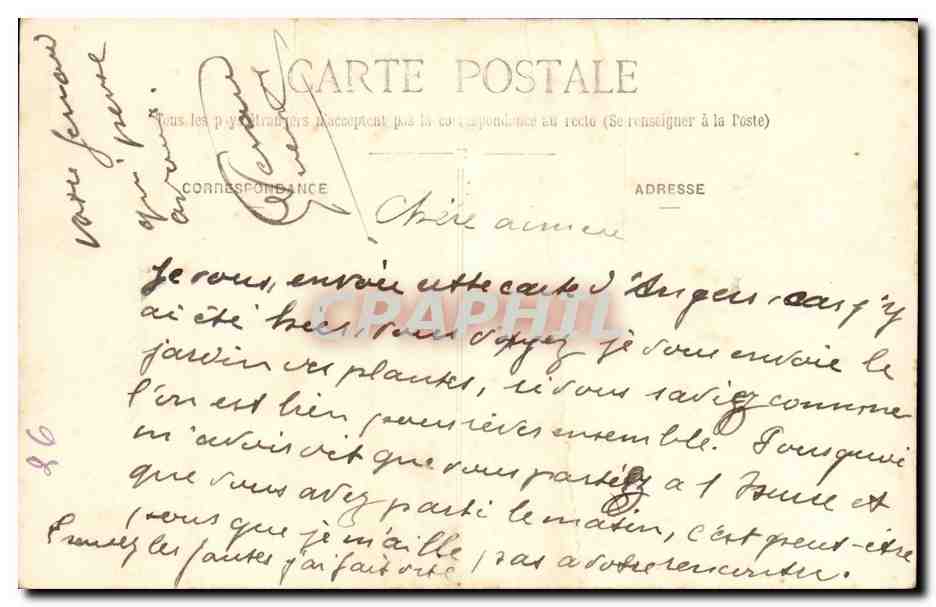 CARTE POSTALE
Tous les pays étrangers n'acceptent pas la correspondance au recto (Se renseigner à la Poste)
CORRESPONDANCE
ADRESSE
Chère aimée
Je vous envoie cette carte d'Angers, car j'y
ai été hier, vous voyez je vous envoie le
jardin des plantes, si vous saviez comme
l'on est bien pour rêver ensemble. Pourquoi
m'avoir dit que vous partiez a 1 heure et
que vous avez parti le matin, c'est peut-être
pour que je m'aille pas a votre rencontre.
Excusez les fautes j'ai fait vite
votre Fernand
qui pense
a vous.
86
CPAPHIL